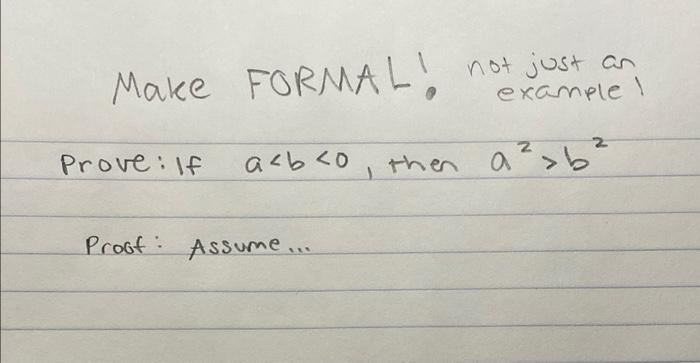 Make FORMAL! not just an
example!
Prove: If a<b<0, then a²>b²
Proof: Assume...